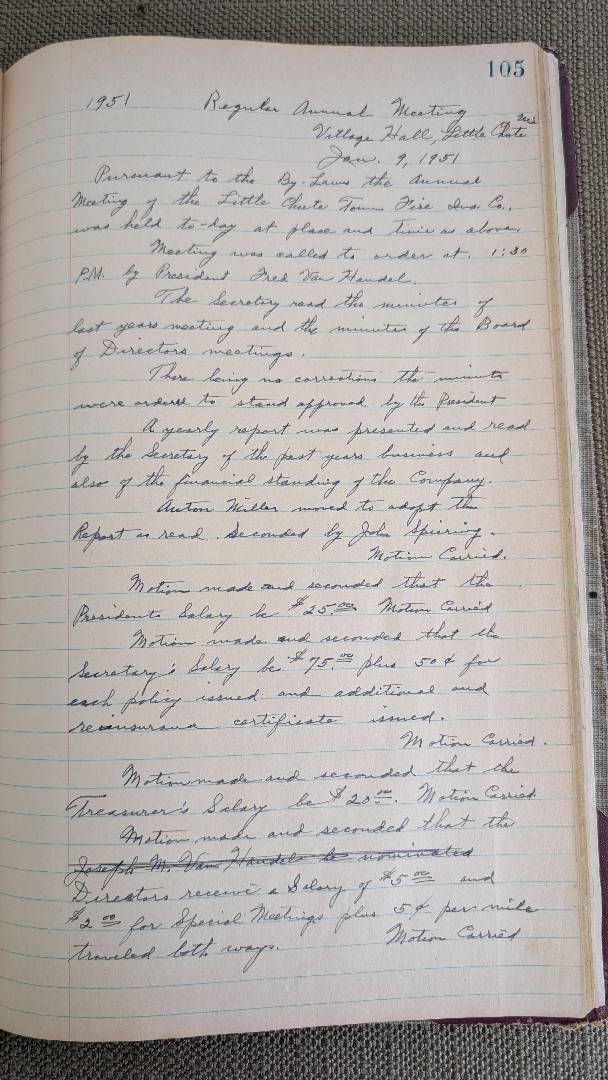 105
1951 Regular Annual Meeting
Village Hall, Little Chute Wis
Jan. 9, 1951
Pursuant to the By-Laws the Annual
Meeting of the Little Chute Town Fire Ins Co.,
was held to-day at place and time as above.
Meeting was called to order at. 1:30
P.M. by President Fred Van Handel.
The Secretary read the minutes of
last years meeting and the minutes of the Board
of Directors meetings.
There being no corrections the minutes
were ordered to stand approved by the President
A yearly report was presented and read
by the Secretary of the past years business and
also of the financial standing of the Company.
Anton Miller moved to adopt the
Report as read. Seconded by John Spiering.
Motion Carried.
Motion made and seconded that the
Presidents Salary be $25.00 Motion Carried
Motion made and seconded that the
Secretary's Salary be $75.00 plus 50¢ for
each policy issued and additional and
reinsurance certificate issued.
Motion Carried.
Motion made and seconded that the
Treasurer's Salary be $20.00. Motion Carried
Motion made and seconded that the
Joseph M. Van Handel be nominated
Directors receive a Salary of $5.00 and
$2.00 for Special Meetings plus 5¢ per mile
traveled both ways. Motion Carried